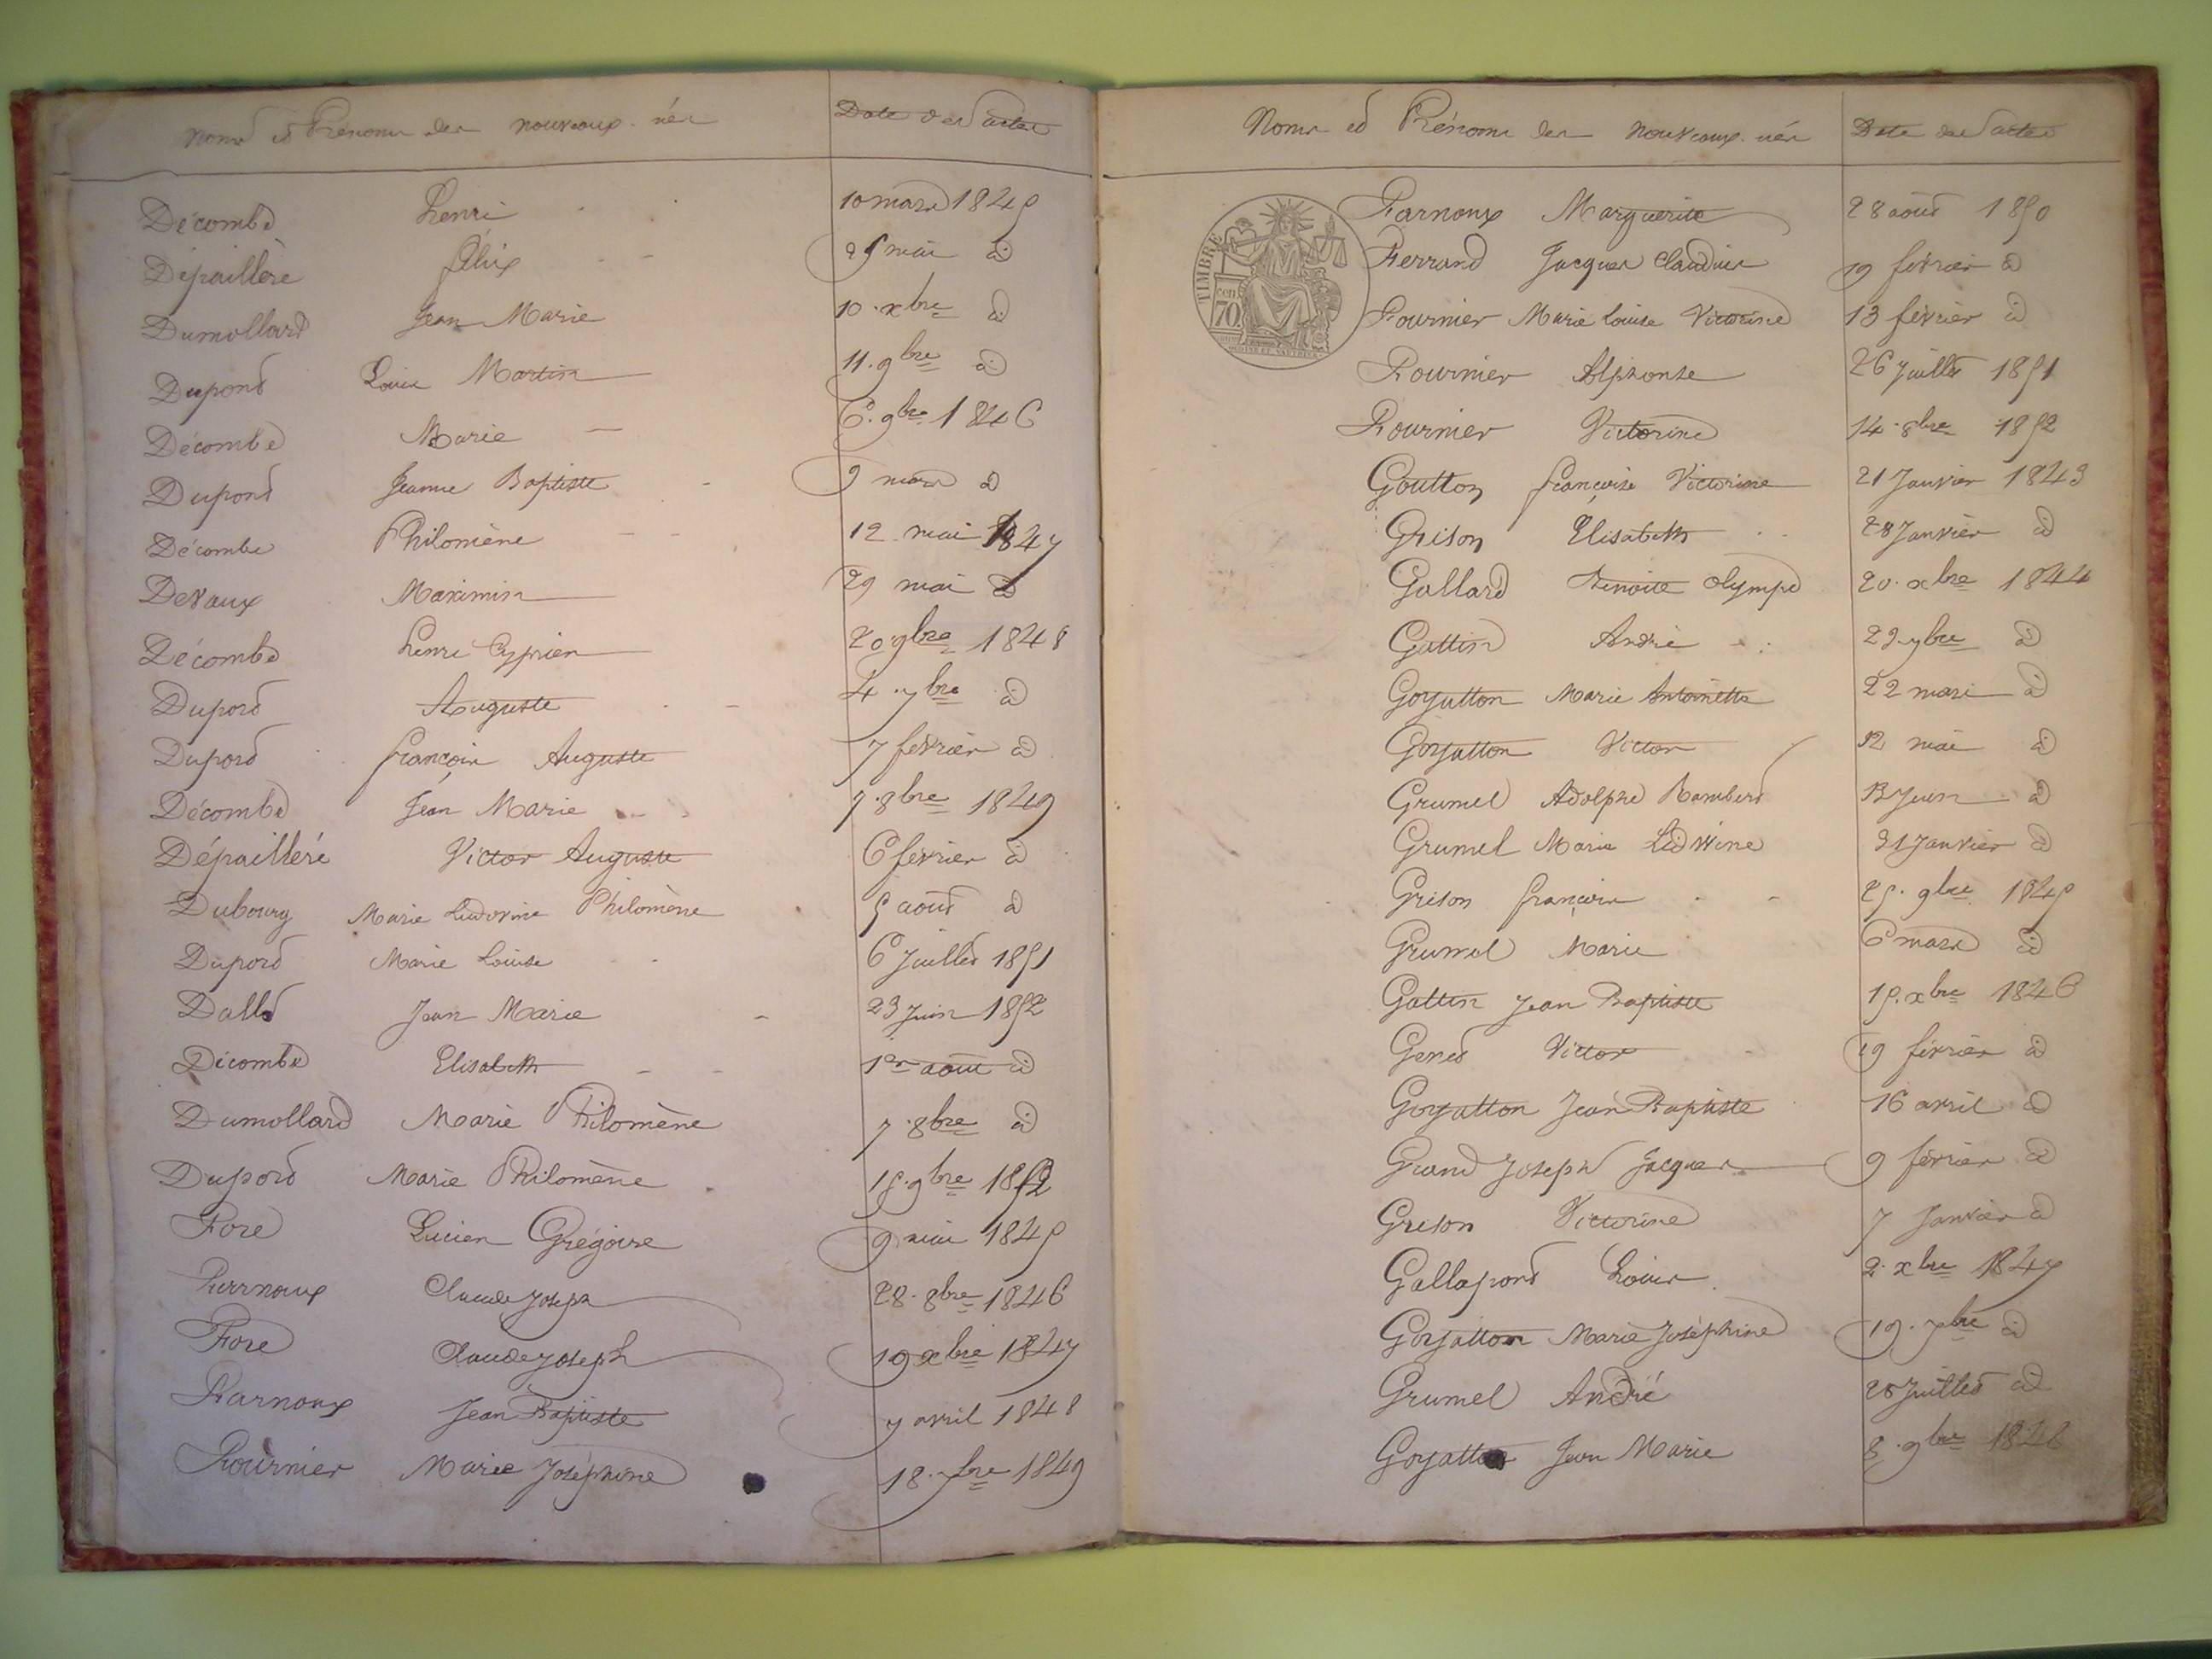 Noms et Prénoms des nouveaux-nés Date des actes
Décombe Henri 10 mars 1845
Dépaillère félix 25 mai d
Dumollard Jean Marie 10 xbre d
Dupont Louis Martin 11 9bre d
Décombe Marie 6 9bre 1846
Dupont Jeanne Baptiste 9 mars d
Décombe Philomène 12 mai 1847
Devaux Maximin 29 mai d
Décombe henri Cyprien 20 9bre 1848
Dupord Auguste 4 7bre d
Dupord françois Auguste 7 février d
Décombe Jean Marie 7 8bre 1849
Dépailléré Victor Auguste 6 février d
Dubourg Marie Ludovine Philomène 5 août d
Dupord Marie Louise 6 Juillet 1851
Dalle Jean Marie 23 Juin 1852
Décombe Elisabeth 1er août d
Dumollard Marie Philomène 7 8bre d
Dupord Marie Philomène 15 9bre 1852
Fore Lucien Grégoire 9 mai 1845
Farnoux Claude Joseph 28 8bre 1846
Fore Claude Joseph 19 xbre 1847
Farnoux Jean Baptiste 7 avril 1848
Fournier Marie Joséphine 18 7bre 1849
Noms et Prénoms des nouveaux-nés Date des actes
TIMBRE
70
Farnoux Marguerite 28 août 1850
Ferrand Jacques Claudius 19 février d
Fournier Marie Louise Victorine 13 février d
Fournier Alphonse 26 Juillet 1851
Fournier Victorine 14 8bre 1852
Goutton françoise Victorine 21 Janvier 1843
Grison Elisabeth 28 Janvier d
Gallard Benoite Olympe 20 xbre 1844
Gattin André 29 7bre d
Goyatton Marie Antoinette 22 mars d
Goyatton Victor 12 mai d
Grumel Adolphe Rambert 13 Juin d
Grumel Marie Lidwine 31 Janvier d
Grison françois 25 9bre 1845
Grumel Marie 6 mars d
Gattin Jean Baptiste 15 xbre 1846
Genet Victor 19 février d
Goyatton Jean Baptiste 16 avril d
Grand Joseph Jacques 9 février d
Grison Victorine 7 Janvier d
Gallapont Louis 2 xbre 1847
Goyatton Marie Joséphine 19 7bre d
Grumel André 28 Juillet d
Goyatton Jean Marie 8 9bre 1848